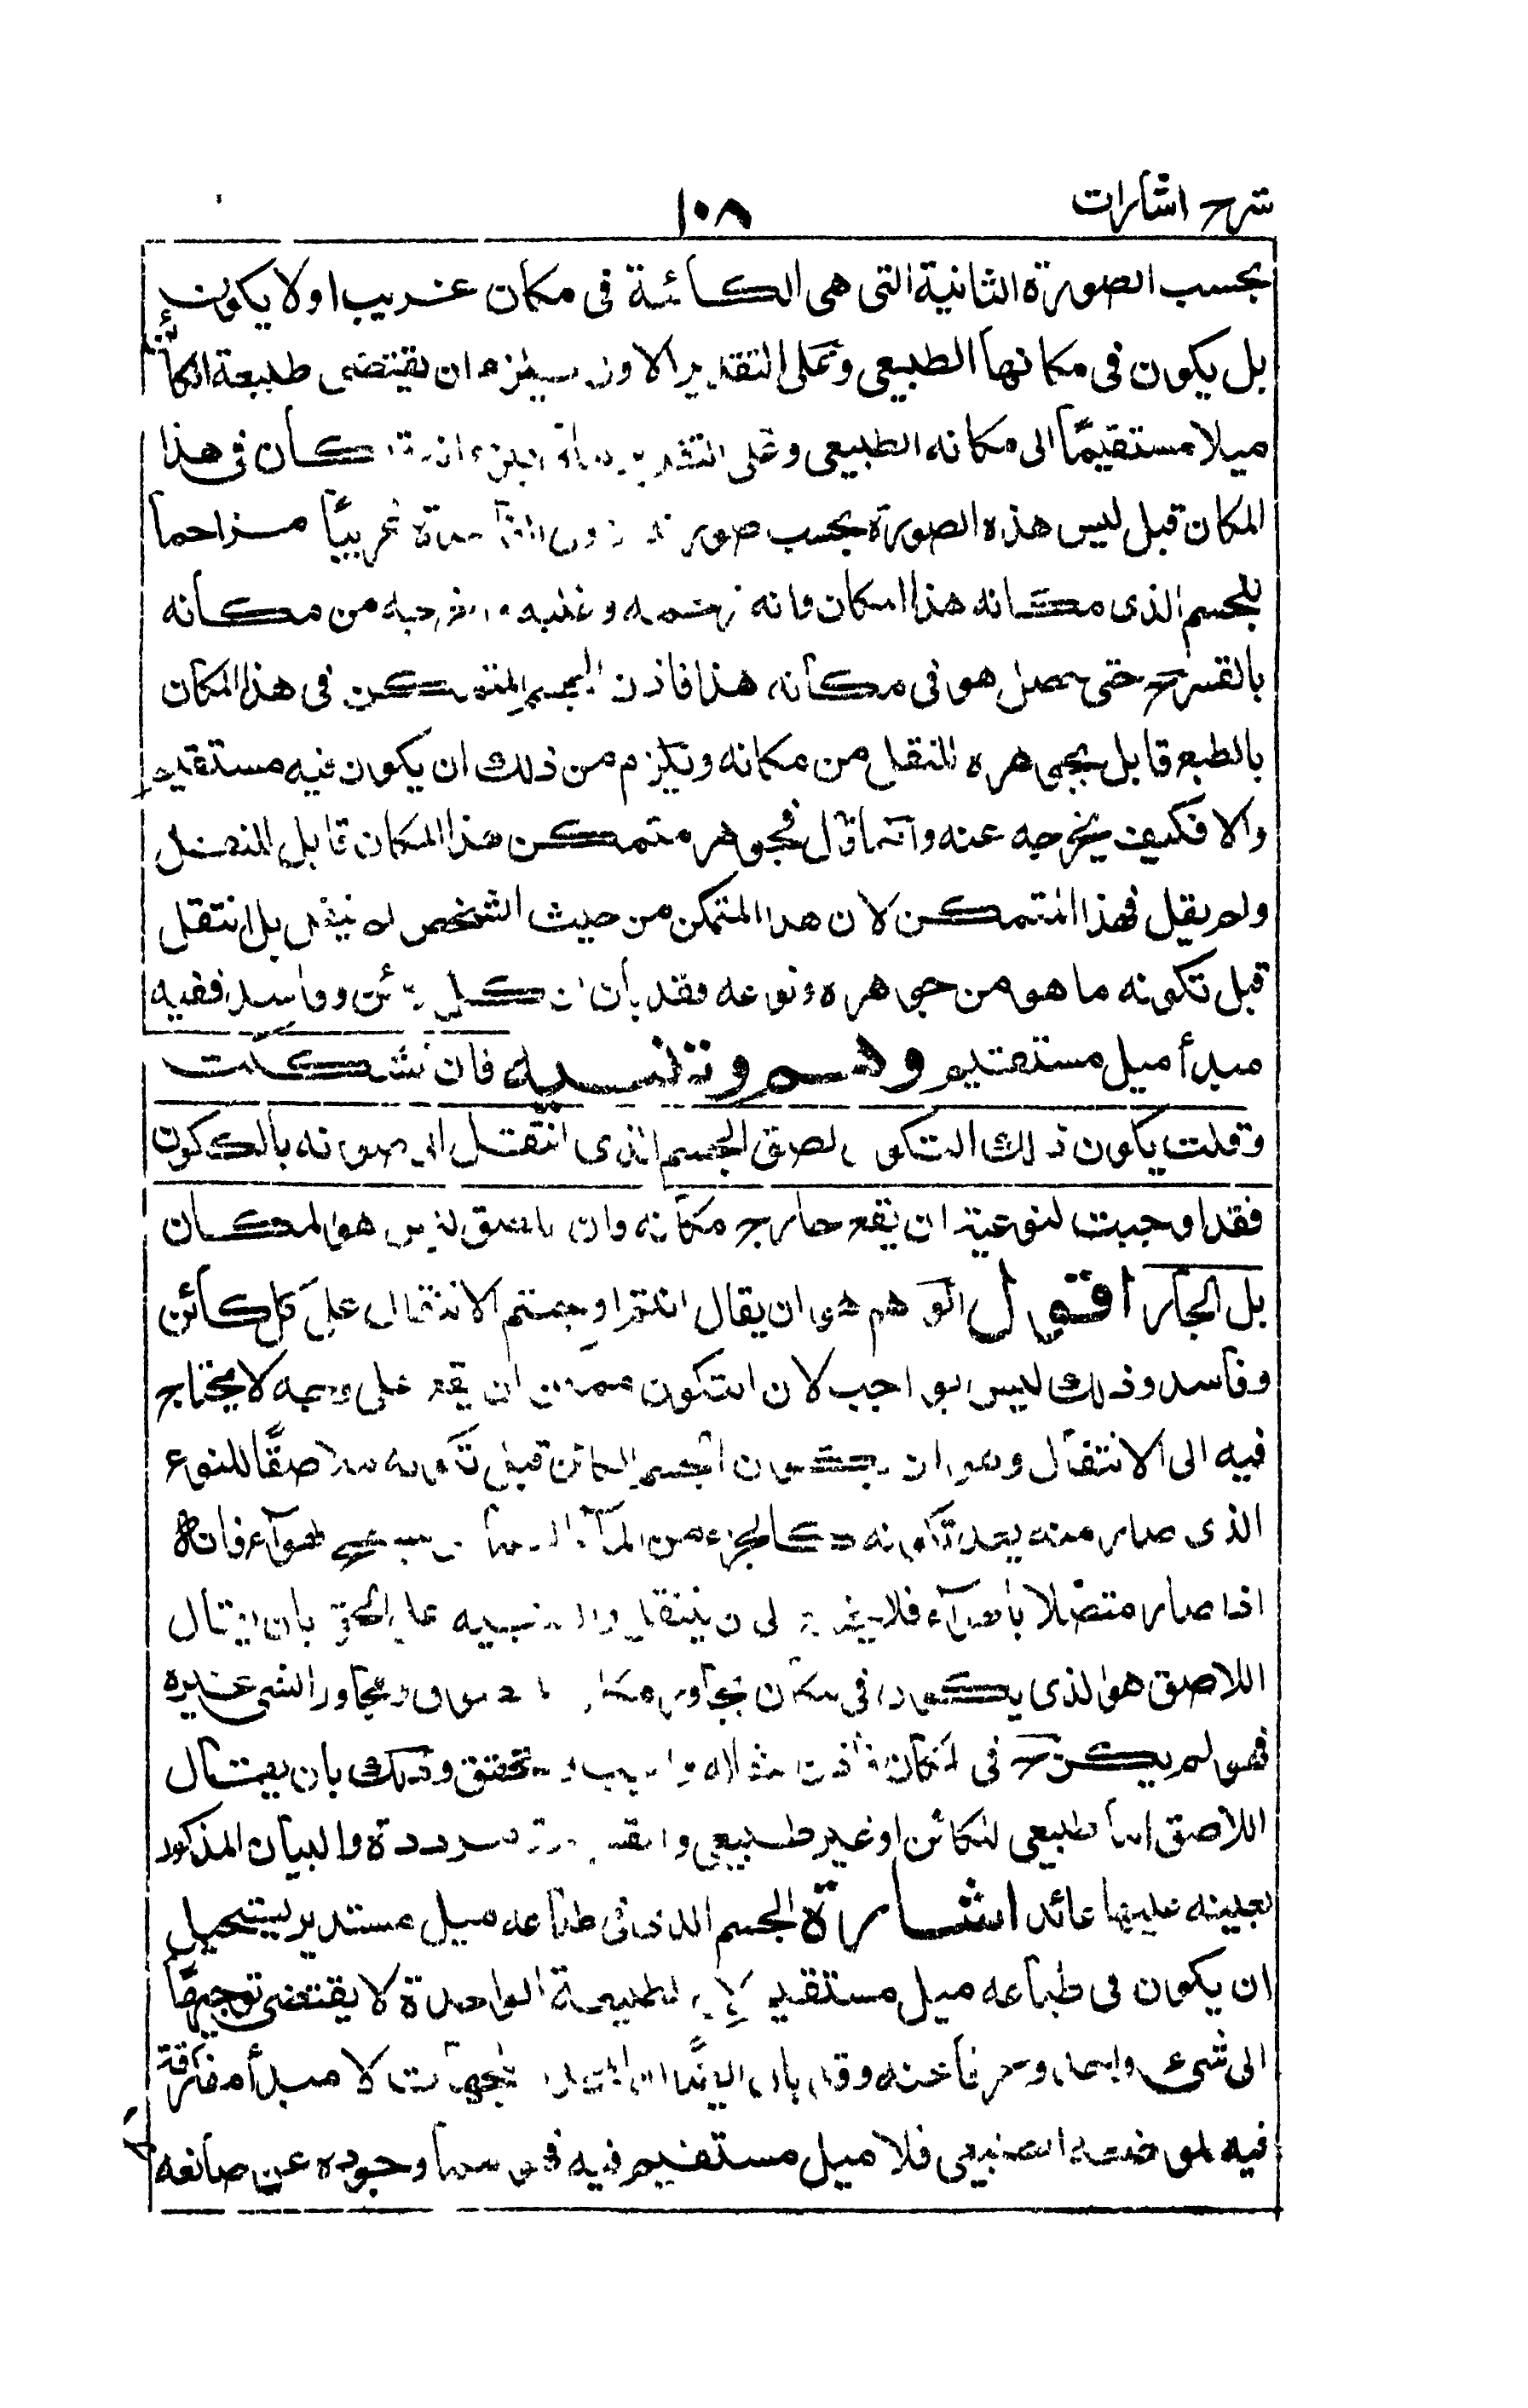 شرح اشارات
١٠٨
بحسب الصورة الثانية التى هى الكائنة فى مكان غريب او لا يكون
بل يكون فى مكانها الطبيعى وعلى التقدير الاول يلزم ان يقتضى طبيعة الكائن
ميلا مستقيما الى مكانه الطبيعى وعلى التقدير كان فى هذا
المكان قبل لبس هذه الصورة بحسب صورته غريبا مزاحما
للجسم الذى مكانه هذا المكان وانه وغلبه من مكانه
بالقسر حتى حصل هو فى مكانه هذا فاذن الجسم المتمكن فى هذا المكان
بالطبع قابل بجوهره للنقل من مكانه ويلزم من ذلك ان يكون فيه مستقيم
والا فكيف يخرجه عنه وانما قال فجوهر متمكن هذا المكان قابل للنقل
ولم يقل فهذا المتمكن لان هذا المتمكن من حيث الشخص لم ينتقل بل انتقل
قبل تكونه ما هو من جوهره ونوعه فقد بان ان كل كائن وفاسد ففيه
مبدأ ميل مستقيم وهم وتنبيه فان تشككت
وقلت يكون ذلك التكون لصق الجسم الذى انتقل الى صورته بالكون
فقد اوجبت لنوعيته ان يقع خارج مكانه وان اللاصق ليس هو المكان
بل الجار اقول الوهم هو ان يقال انكم اوجبتم الانتقال على كل كائن
وفاسد وذلك ليس بواجب لان التكون ممكن ان يقع على وجه لا يحتاج
فيه الى الانتقال وهو ان يكون الجسم الكائن قبل تكونه ملاصقا للنوع
الذى صار منه بعد تكونه كالجزء من الماء هواء فانه
اذا صار متصلا بالهواء فلا ان ينتقل والتنبيه على الحق بان يقال
اللاصق هو الذى يكون فى مكان يجاور مكان ومجاور الشئ غيره
فهو لم يكن فى المكان فاذن وتحقق وذلك بان يقال
اللاصق اما طبيعى للكائن او غير طبيعى والبيان المذكور
بعينه عليها عائد اشارة الجسم الذى فى طباعه ميل مستدير يستحيل
ان يكون فى طباعه ميل مستقيم لان الطبيعة الواحدة لا يقتضى توجيها
الى شئ واحد وصرفا عنه وقد بان الجهات لا مبدأ مفارقة
فيه لموضعه الطبيعى فلا ميل مستقيم فيه فهو مما وجوده عن صانعه